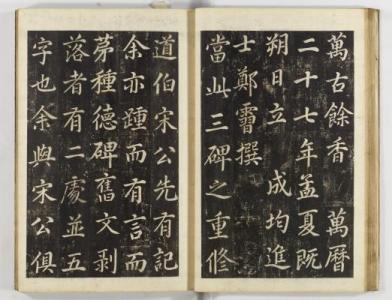 萬古餘香 萬曆
二十七年孟夏既
朔日立 成均進
士鄭霫撰
當此三碑之重修
道伯宋公先有記
余亦踵而有言而
茅種德碑舊文剥
落者有二處並五
字也余與宋公俱